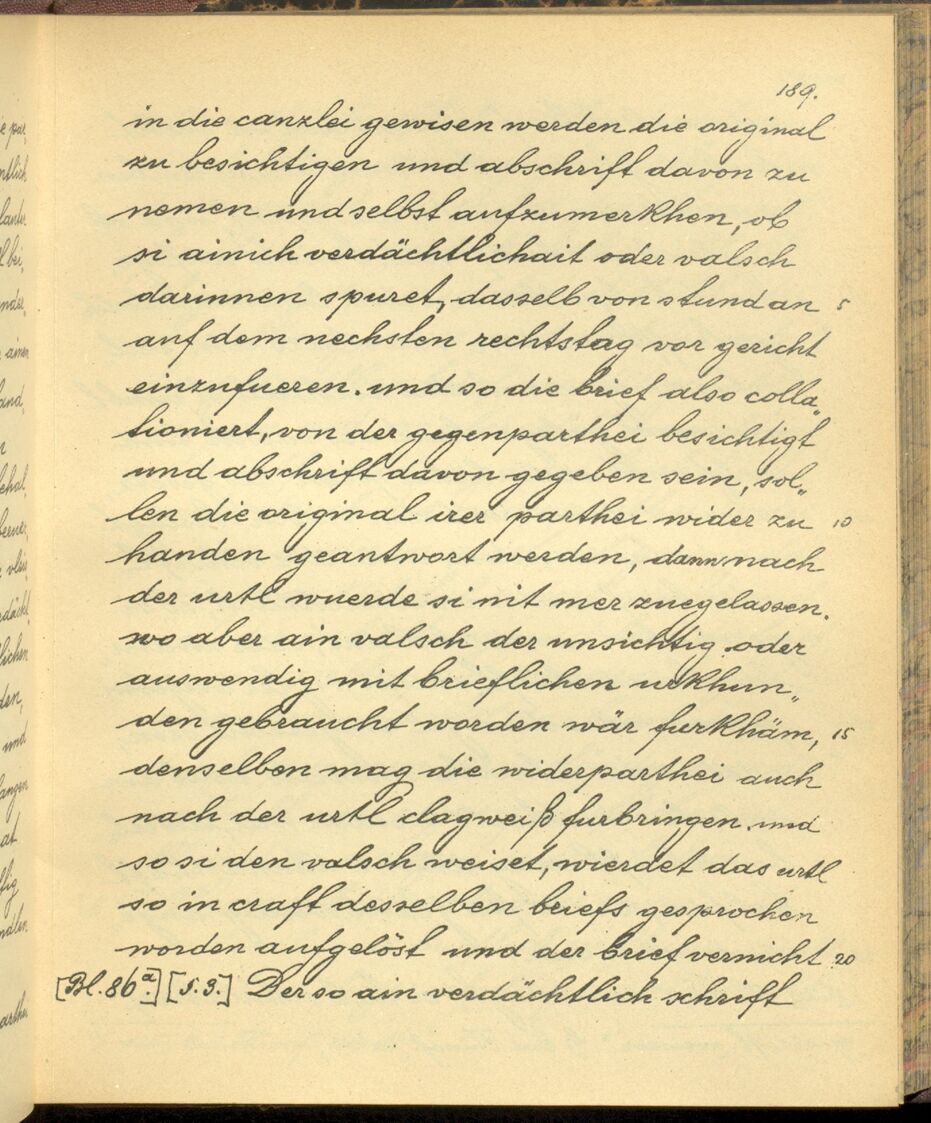 189.
in die canzlei gewisen werden die original
zu besichtigen und abschrift davon zu
nemen und selbst aufzumerkhen, ob
si ainich verdächtlichait oder valsch
darinnen spuret, dasselb von stund an 5
auf dem nechsten rechtstag vor gericht
einzufueren. und so die brief also colla„
tioniert, von der gegenparthei besichtigt
und abschrift davon gegeben sein, sol„
len die original irer parthei wider zu 10
handen geantwort werden, dann nach
der urtl wuerde si nit mer zuegelassen.
wo aber ain valsch der unsichtig oder
auswendig mit brieflichen urkhun„
den gebraucht worden wär furkhäm, 15
denselben mag die widerparthei auch
nach der urtl clagweiß furbringen. und
so si den valsch weiset, wierdet das urtl
so in craft desselben briefs gesprochen
worden aufgelöst und der brief vernicht. 20
[Bl. 86a.] [§. 3.] Der so ain verdächtlich schrift